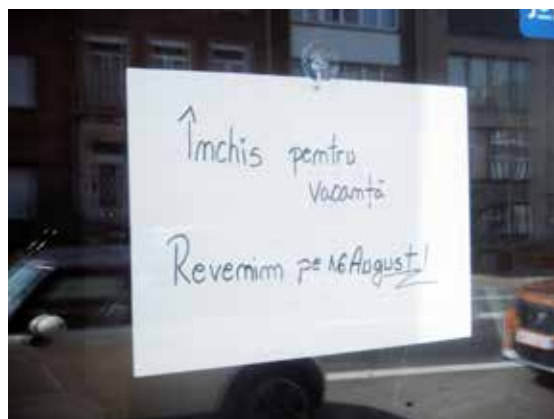 Închis pentru
vacanță
Revenim pe 16 August!